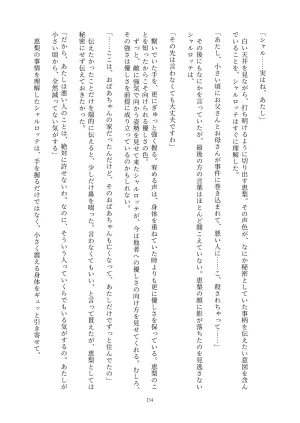 「シャル……実はね、あたし」
白い天井を見ながら、打ち明けるように切り出す恵梨。その声色が、なにか秘密としていた事柄を伝えたい意図を含ん
でいることを、シャルロッテはすぐに理解した。
「あたし、小さい頃にお父さんとお母さんが事件に巻き込まれて、悪い人に……こ、殺されちゃって……」
その後にもなにかを言っていたが、最後の方の言葉はほとんど聞こえていない。恵梨の顔に影が落ちたのを見逃さない
シャルロッテは、
「その先は言わなくても大丈夫ですわ」
繋いでいた手を、更にぎゅっと強く握る。宥める声は、身体を重ねていた時よりも更に優しさを保っている。恵梨のこ
とを知ったからこそ向けられる優しさの色。
ずっと、敵に強気で向かう姿勢を見せて来たシャルロッテが、今は他者への優しさの向け方を見せてくれる。むしろ、
その強さは優しさを前提に成り立っているのかもしれない。
「……ここは、おばあちゃんの家だったんだけど、そのおばあちゃんも亡くなって、あたしだけでずっと住んでたの」
伝えたかったことだけを端的に伝えると、少しだけ鼻を啜った。言わなくてもいい、と言って貰えたが、恵梨としては
秘密にせず伝えておきたかった。
「だから、あたしは悪い人のことは、絶対に許せないわ。なのに、そういう人っていくらでもいる気がするの。あたしが
小さい頃から、全然減ってない気がする」
恵梨の事情を理解したシャルロッテは、手を握るだけではなく、小さく震える身体をギュッと引き寄せて、
134